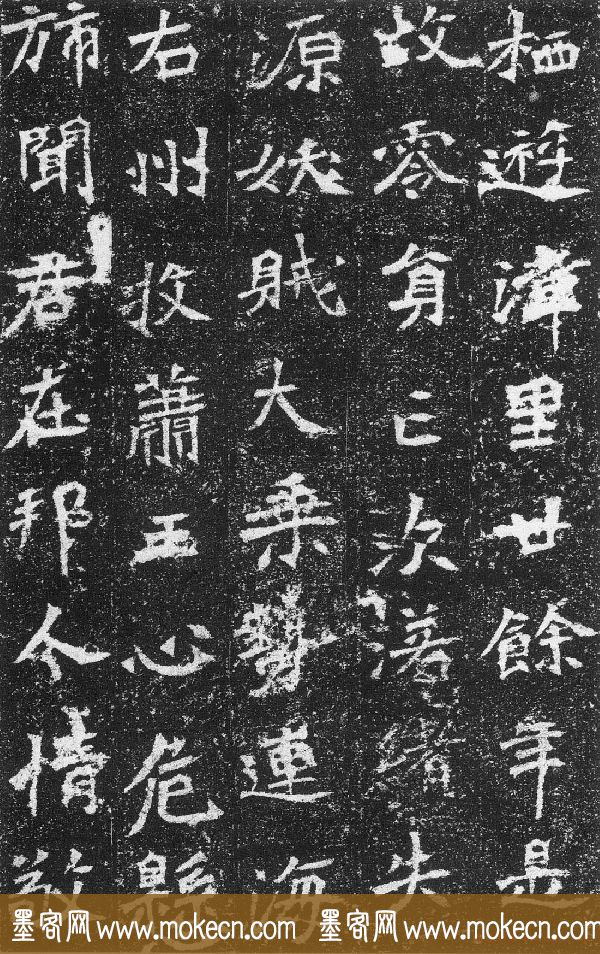 栖遊漳里廿餘年是
故零負亡次著緒失
源妖賊大乘勢連海
右州牧蕭王心危懸
旆聞君在邦人情敬
墨客网 www.mokecn.com 墨客网 www.mokecn.com